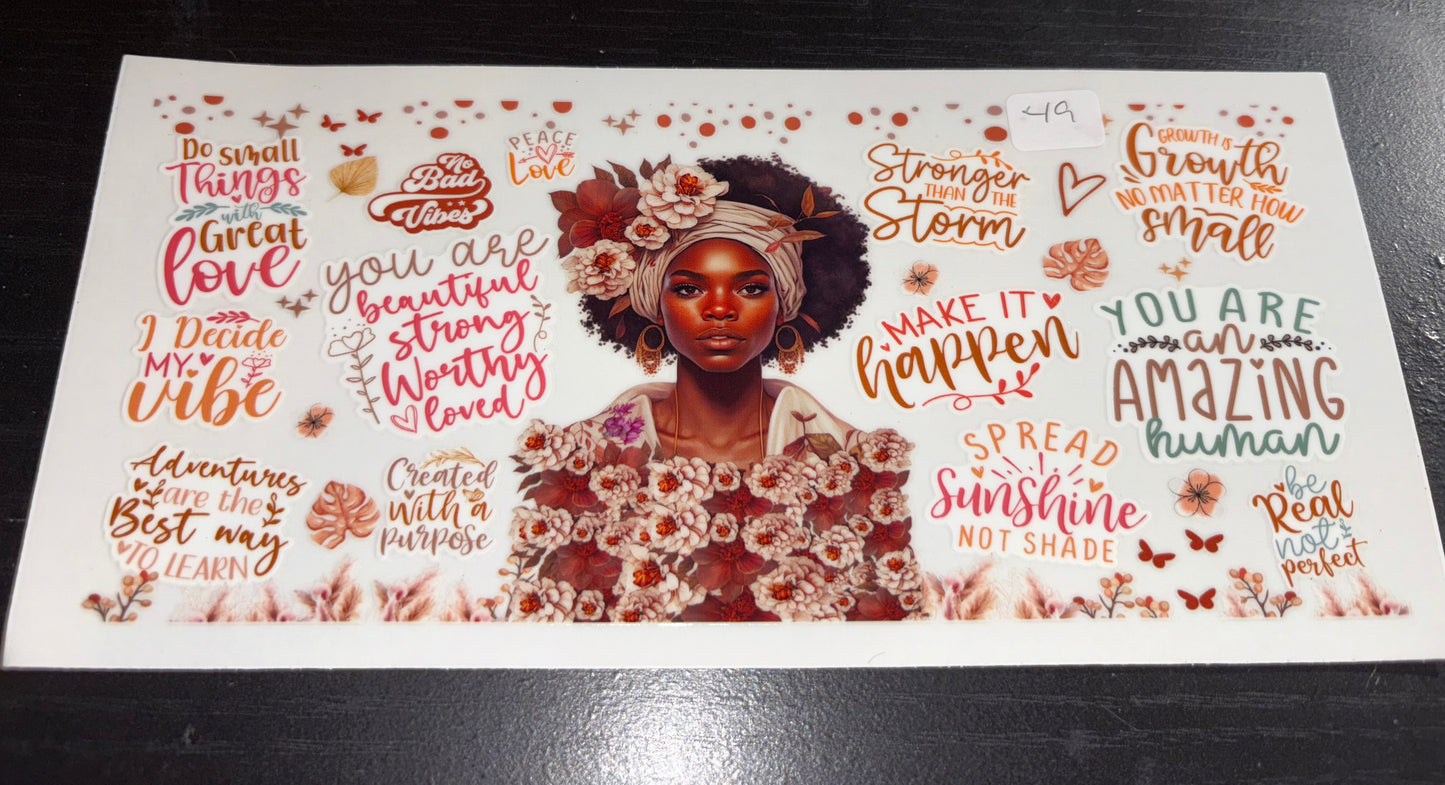 Do small
Things
with
Great
love
No
Bad
Vibes
PEACE
Love
you are
beautiful
strong
Worthy
loved
I Decide
MY
vibe
Adventures
are the
Best way
TO LEARN
Created
with a
purpose
Stronger
THAN THE
Storm
49
GROWTH IS
Growth
NO MATTER HOW
small
MAKE IT
happen
YOU ARE
an
AMAZING
human
SPREAD
Sunshine
NOT SHADE
be
Real
not
perfect